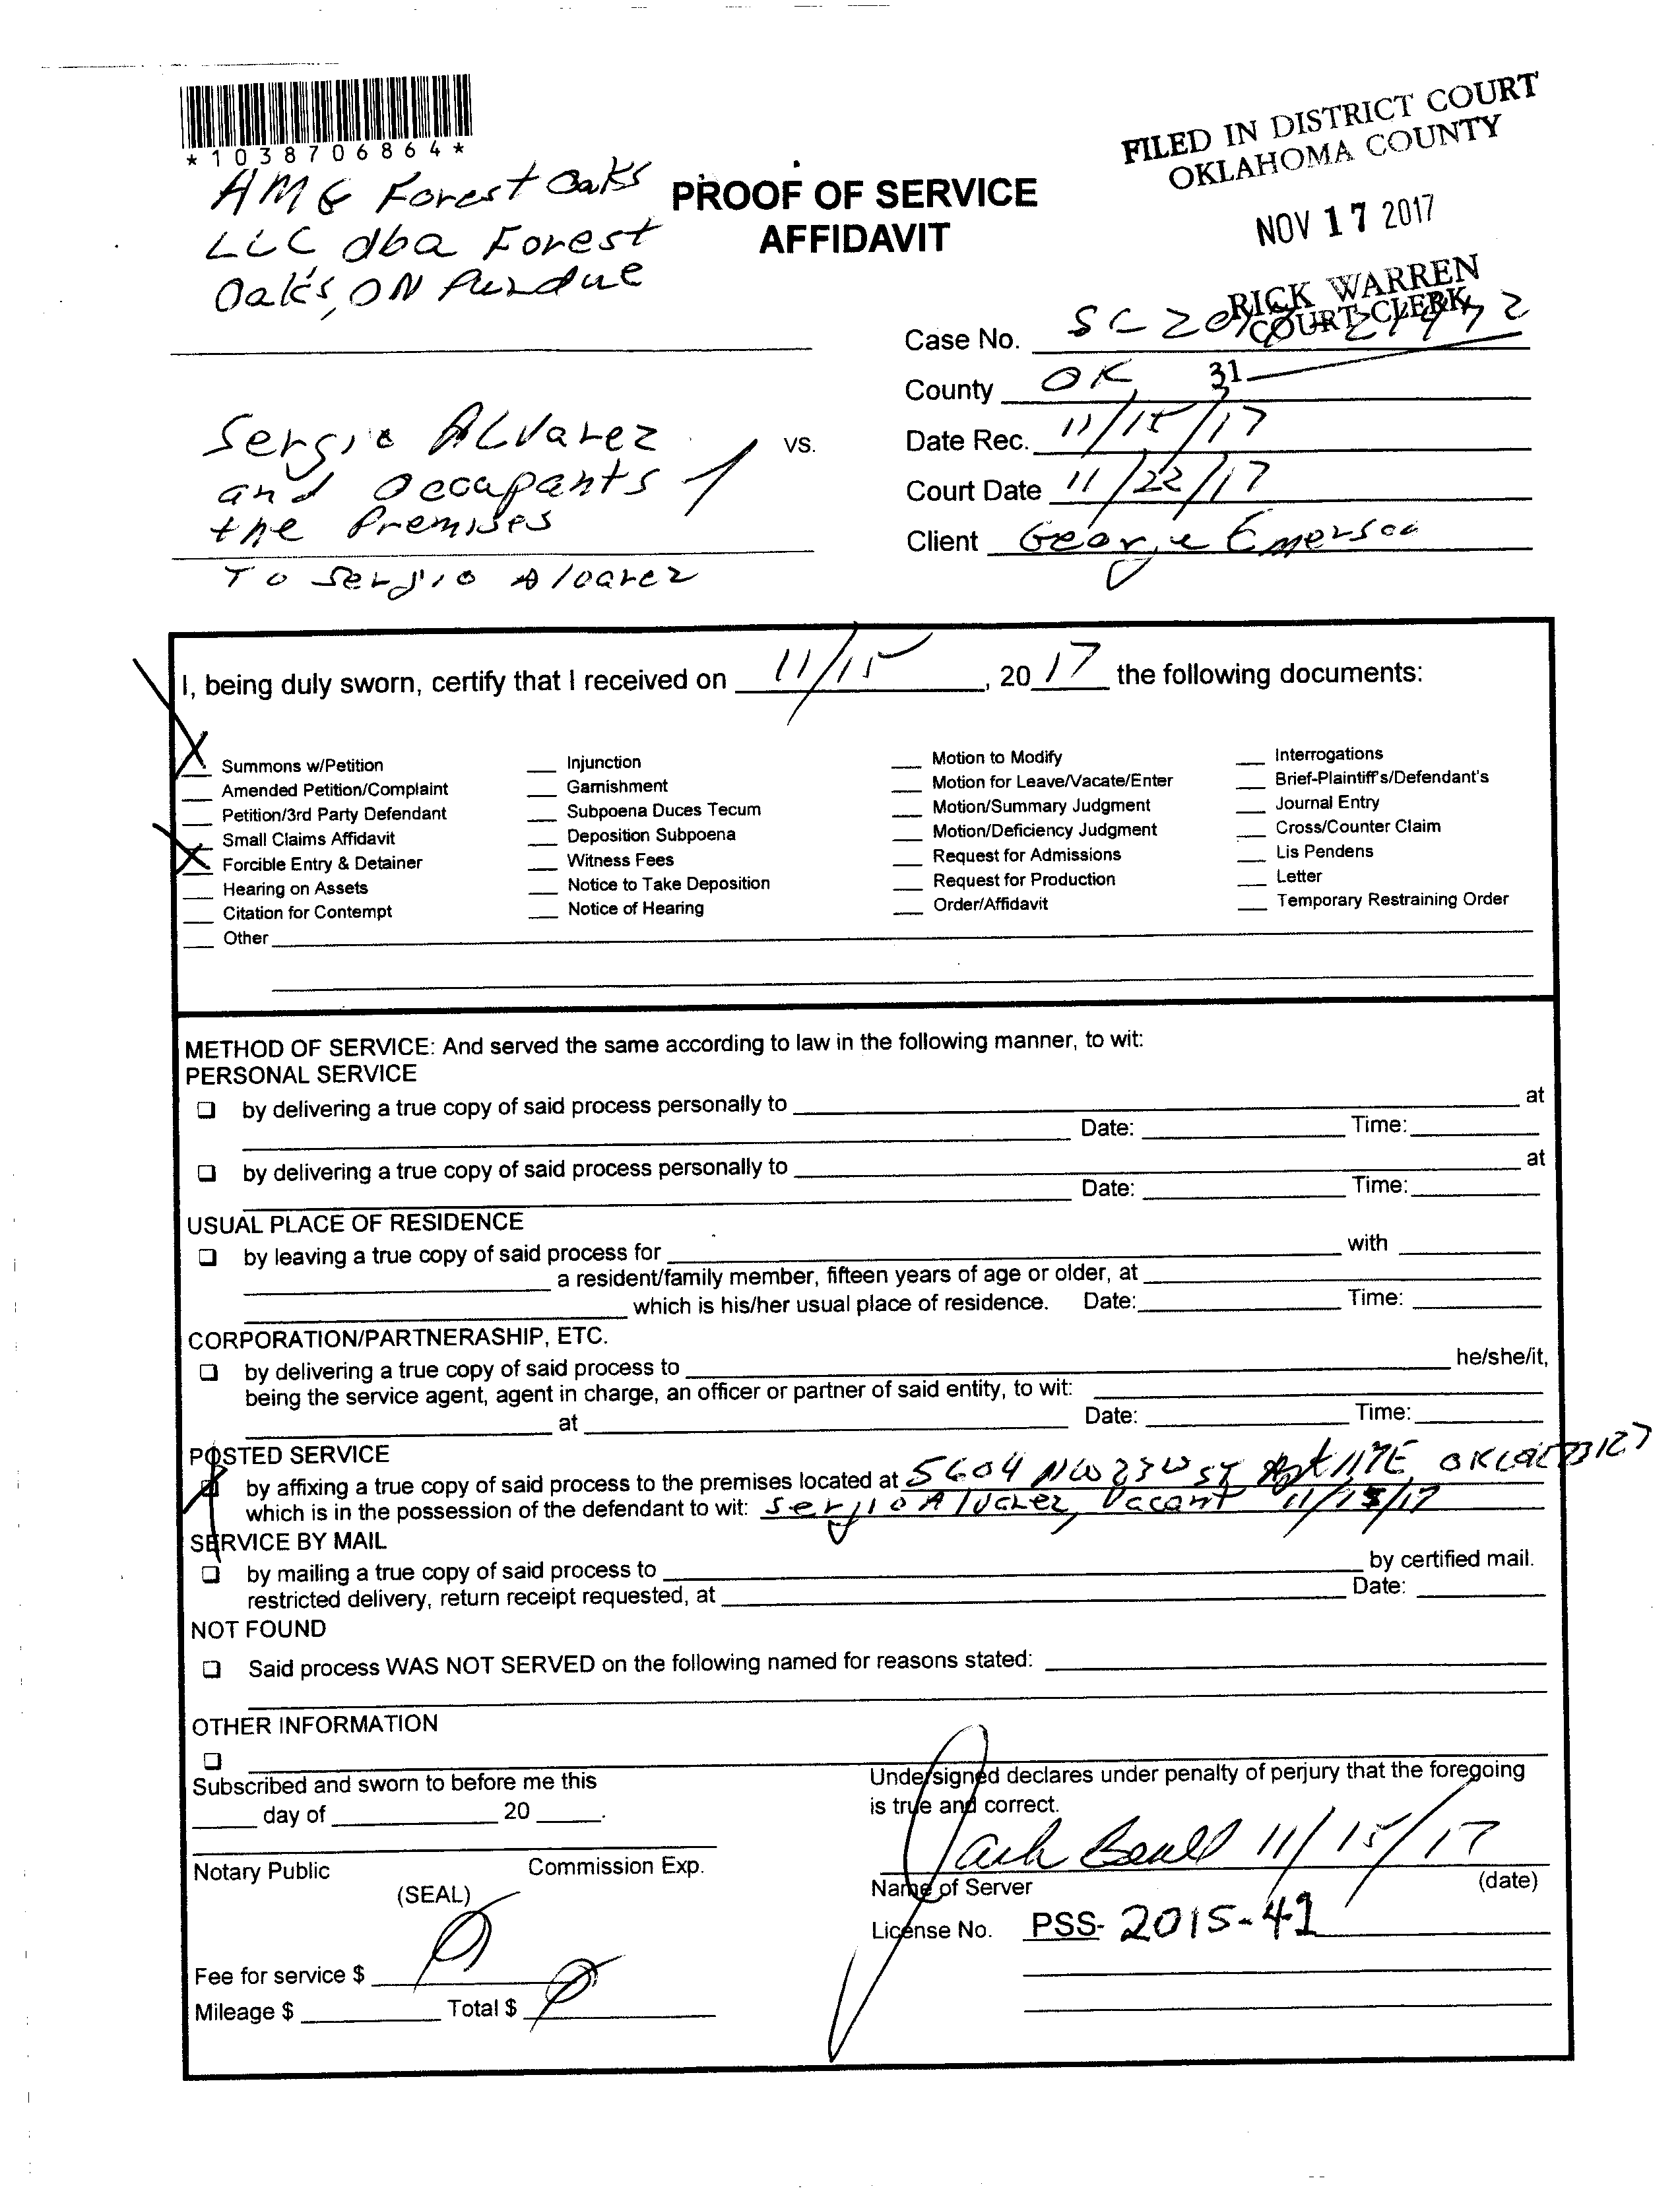 *1038706864*
FILED IN DISTRICT COURT
OKLAHOMA COUNTY
NOV 17 2017
RICK WARREN
COURT CLERK
31
PROOF OF SERVICE
AFFIDAVIT
Forest Oaks
LLC dba Forest
Oaks, ON Purdue
vs.
Sergio ALVarez
and Occupants
the Premises
To Sergio Alvarez
Case No. SC
County OK
Date Rec. 11/15/17
Court Date 11/22/17
Client George Emerson
I, being duly sworn, certify that I received on 11/15, 2017 the following documents:
X Summons w/Petition
Amended Petition/Complaint
Petition/3rd Party Defendant
Small Claims Affidavit
X Forcible Entry & Detainer
Hearing on Assets
Citation for Contempt
Other
Injunction
Garnishment
Subpoena Duces Tecum
Deposition Subpoena
Witness Fees
Notice to Take Deposition
Notice of Hearing
Motion to Modify
Motion for Leave/Vacate/Enter
Motion/Summary Judgment
Motion/Deficiency Judgment
Request for Admissions
Request for Production
Order/Affidavit
Interrogations
Brief-Plaintiff's/Defendant's
Journal Entry
Cross/Counter Claim
Lis Pendens
Letter
Temporary Restraining Order
METHOD OF SERVICE: And served the same according to law in the following manner, to wit:
PERSONAL SERVICE
by delivering a true copy of said process personally to at
Date: Time:
by delivering a true copy of said process personally to at
Date: Time:
USUAL PLACE OF RESIDENCE
by leaving a true copy of said process for with
a resident/family member, fifteen years of age or older, at
which is his/her usual place of residence. Date: Time:
CORPORATION/PARTNERASHIP, ETC.
by delivering a true copy of said process to he/she/it,
being the service agent, agent in charge, an officer or partner of said entity, to wit:
at Date: Time:
POSTED SERVICE
by affixing a true copy of said process to the premises located at 5604 NW 23rd ST Apt 117E 73127
which is in the possession of the defendant to wit: Sergio Alvarez, Vacant 11/15/17
SERVICE BY MAIL
by mailing a true copy of said process to by certified mail.
restricted delivery, return receipt requested, at Date:
NOT FOUND
Said process WAS NOT SERVED on the following named for reasons stated:
OTHER INFORMATION
Subscribed and sworn to before me this
day of 20 .
Notary Public Commission Exp.
(SEAL)
Fee for service $
Mileage $ Total $
Undersigned declares under penalty of perjury that the foregoing
is true and correct.
11/15/17
Name of Server (date)
License No. PSS- 2015-41